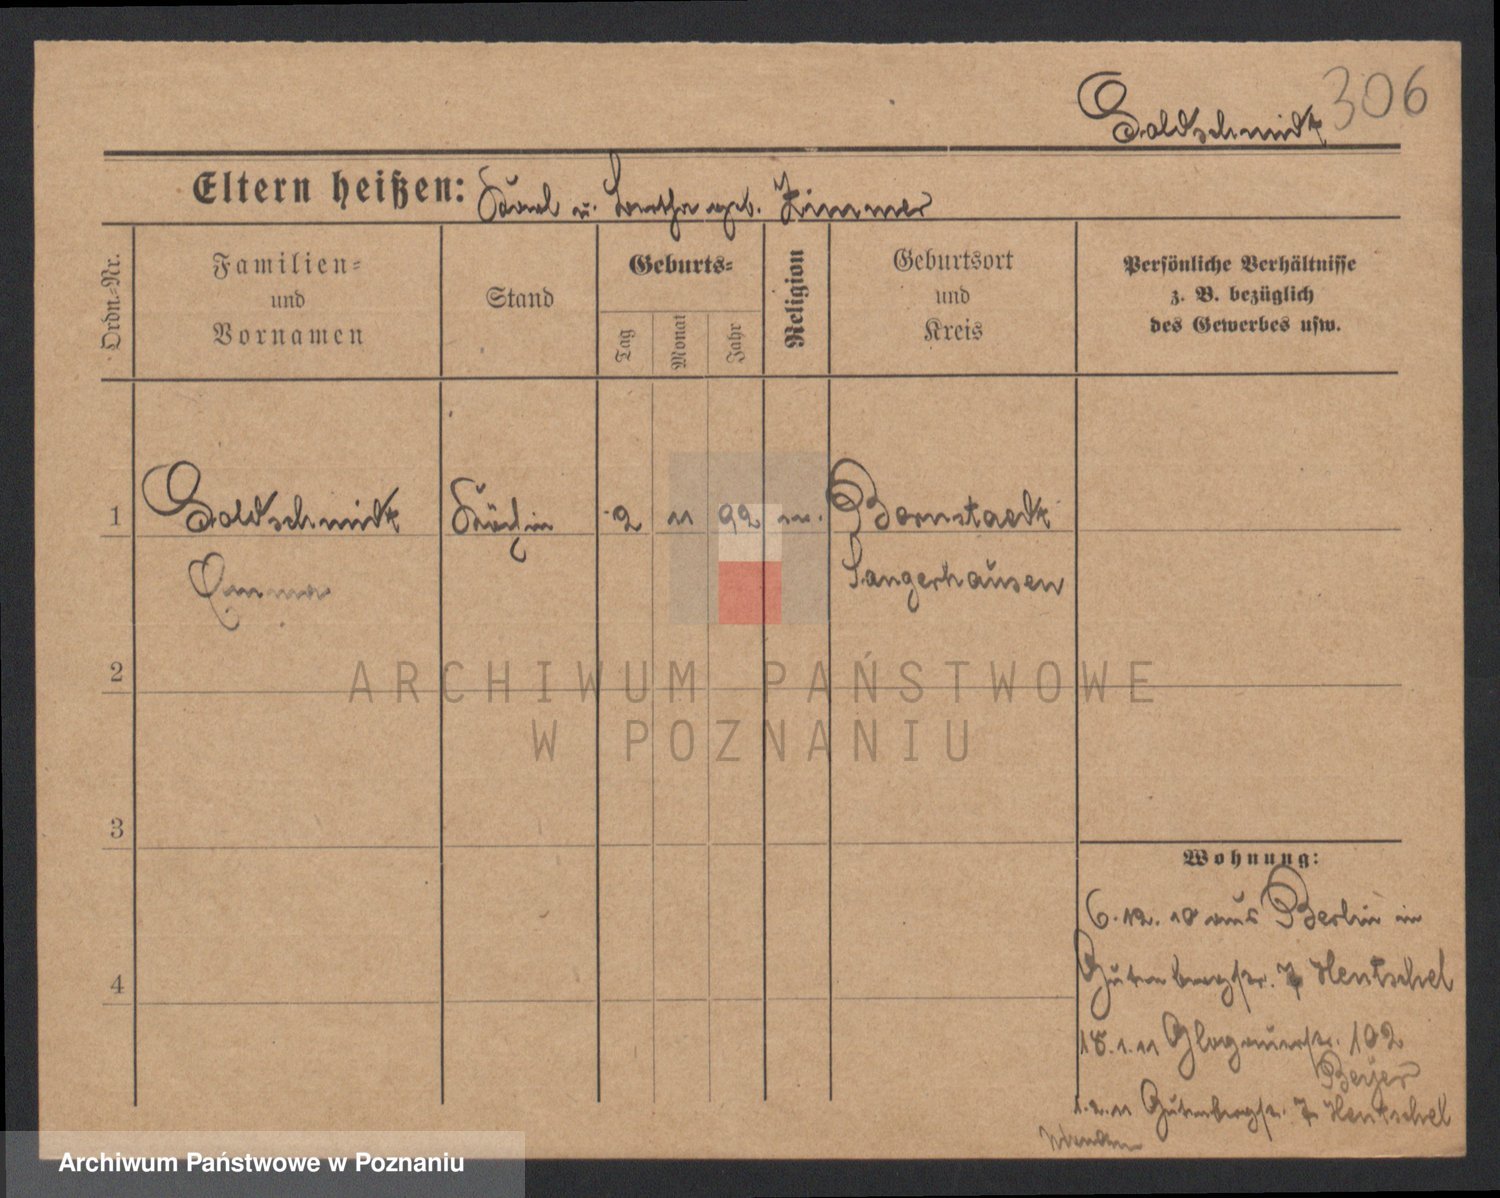 Goldschmidt 306
Eltern heißen: Karl u. Bertha geb. Zimmer
Ordn.-Nr.
Familien-
und
Vornamen
Stand
Geburts-
Tag
Monat
Jahr
Religion
Geburtsort
und
Kreis
Persönliche Verhältnisse
z. B. bezüglich
des Gewerbes usw.
1
Goldschmidt
Emma
Köchin
2
11
92
ev.
Bornstaedt
Sangerhausen
2
3
4
ARCHIWUM PAŃSTWOWE
W POZNANIU
Wohnung:
6.12.10 aus Berlin in
Gutenbergstr. 7 Hentschel
18.1.11 Glogauerstr. 102
Beyer
1.2.11 Gutenbergstr. 7 Hentschel
Wenden
Archiwum Państwowe w Poznaniu